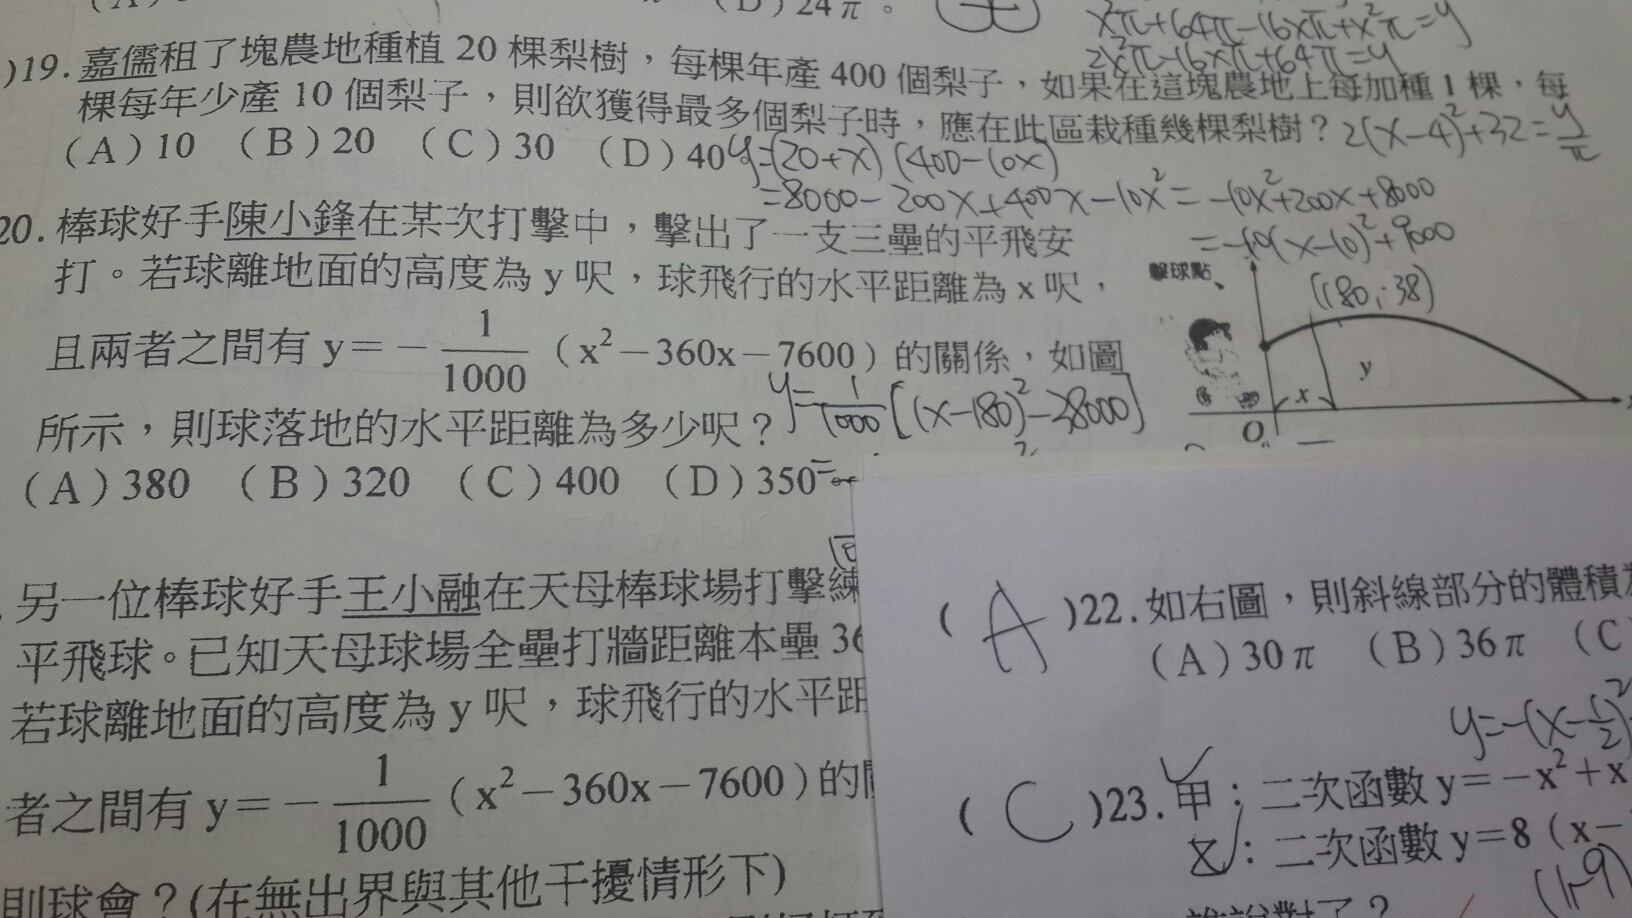 (D)24π。
x²π+64π-16xπ+x²π=y
2x²π-16xπ+64π=y
)19.嘉儒租了塊農地種植20棵梨樹，每棵年產400個梨子，如果在這塊農地上每加種1棵，每
棵每年少產10個梨子，則欲獲得最多個梨子時，應在此區栽種幾棵梨樹？2(x-4)²+32=y/π
(A)10 (B)20 (C)30 (D)40 y=(20+x)(400-10x)
=8000-200x+400x-10x²=-10x²+200x+8000
=-10(x-10)²+9000
20.棒球好手陳小鋒在某次打擊中，擊出了一支三壘的平飛安
打。若球離地面的高度為y呎，球飛行的水平距離為x呎，
且兩者之間有y=-1/1000(x²-360x-7600)的關係，如圖
所示，則球落地的水平距離為多少呎？y=-1/1000[(x-180)²-38000]
(A)380 (B)320 (C)400 (D)350
擊球點
(180,38)
y
x
O
另一位棒球好手王小融在天母棒球場打擊練
平飛球。已知天母球場全壘打牆距離本壘36
若球離地面的高度為y呎，球飛行的水平距
者之間有y=-1/1000(x²-360x-7600)的
則球會？(在無出界與其他干擾情形下)
(A)22.如右圖，則斜線部分的體積
(A)30π (B)36π (C
y=-(x-1/2)²
(C)23.甲：二次函數y=-x²+x
乙：二次函數y=8(x-
(1,-9)
誰說對了？